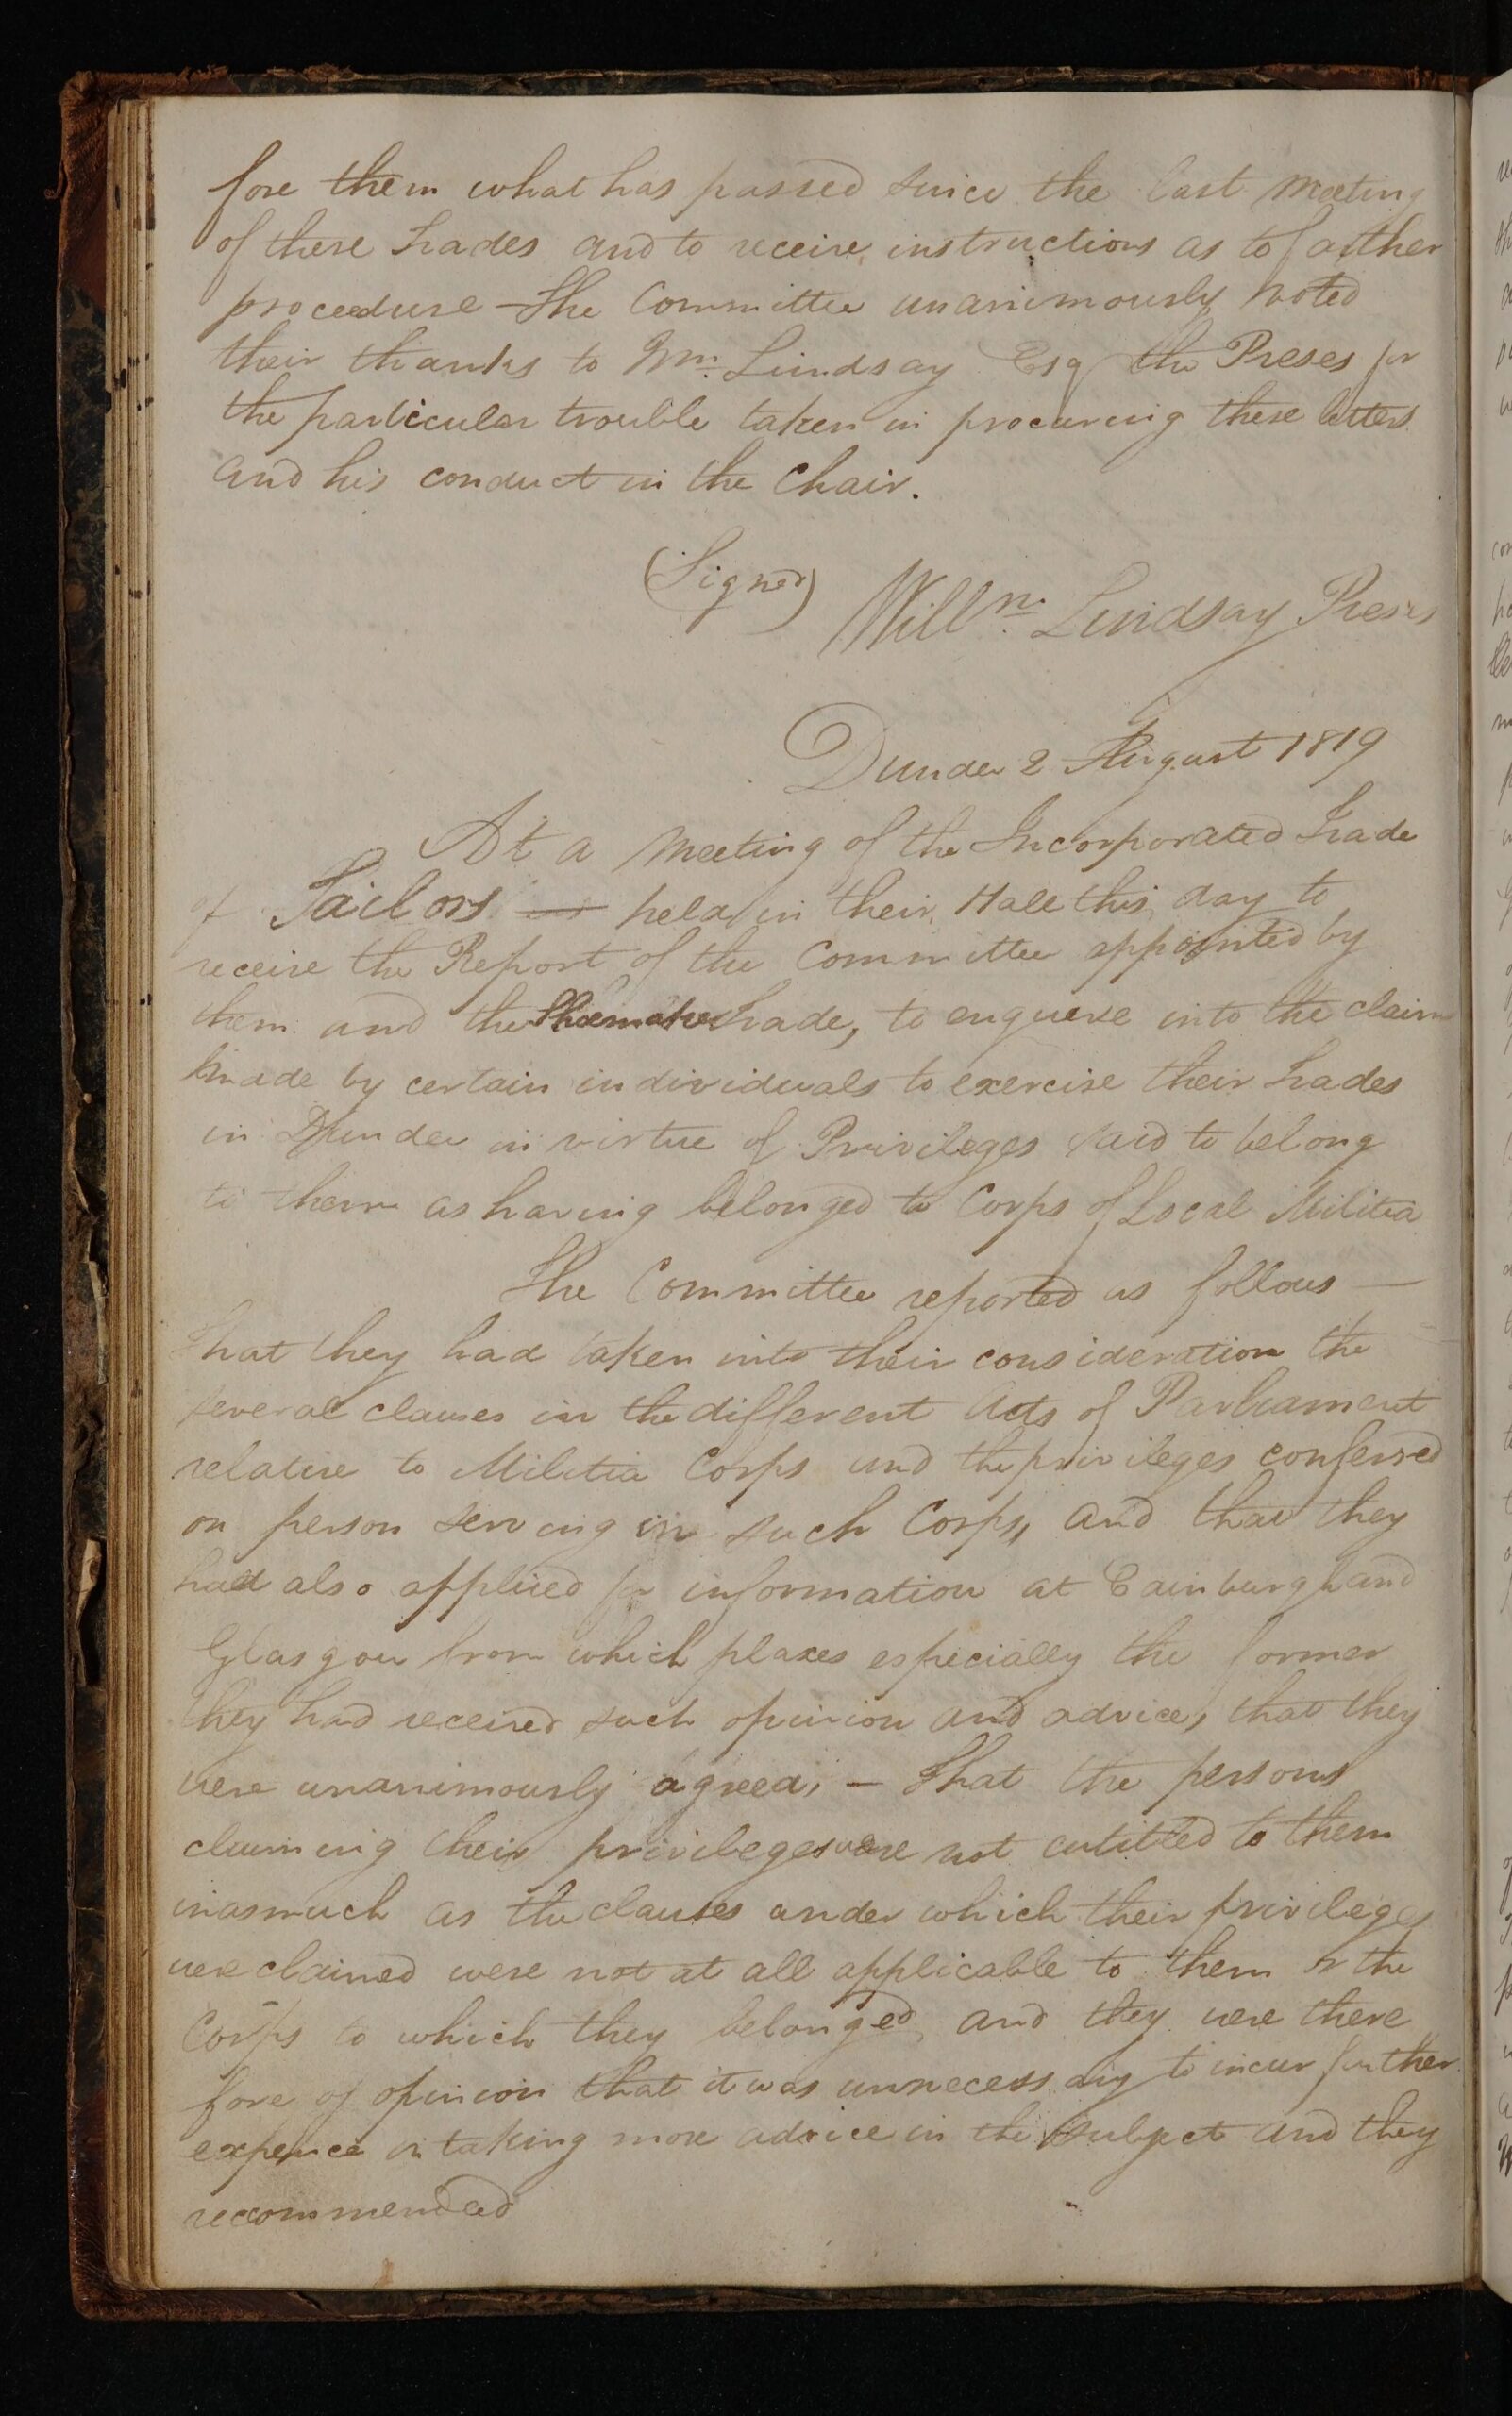 fore them what has passed since the last meeting
of these Trades and to receive instructions as to farther
proceedure - The Committee unanimously voted
their thanks to Wm. Lindsay Esq the Preses for
the particular trouble taken in procuring these letters
and his conduct in the Chair.
(Signed) Willm. Lindsay Preses
Dundee 2 August 1819
At a meeting of the Incorporated Trade
of Tailors held in their Hall this day to
receive the Report of the Committee appointed by
them and the Shoemaker Trade, to enquire into the claim
made by certain individuals to exercise their trades
in Dundee in virtue of Privileges said to belong
to them as having belonged to Corps of Local Militia
The Committee reported as follows —
That they had taken into their consideration the
several clauses in the different Acts of Parliament
relative to Militia Corps and the privileges conferred
on person serving in such Corps, and that they
had also applied for information at Edinburgh and
Glasgow from which places especially the former
they had received such opinion and advice, that they
were unanimously agreed, — That the persons
claiming their privileges were not entitled to them
inasmuch as the clauses under which their privileges
were claimed were not at all applicable to them or the
Corps to which they belonged, and they were there
fore of opinion that it was unnecessary to incur further
expence in taking more advice in the subject and they
recommended